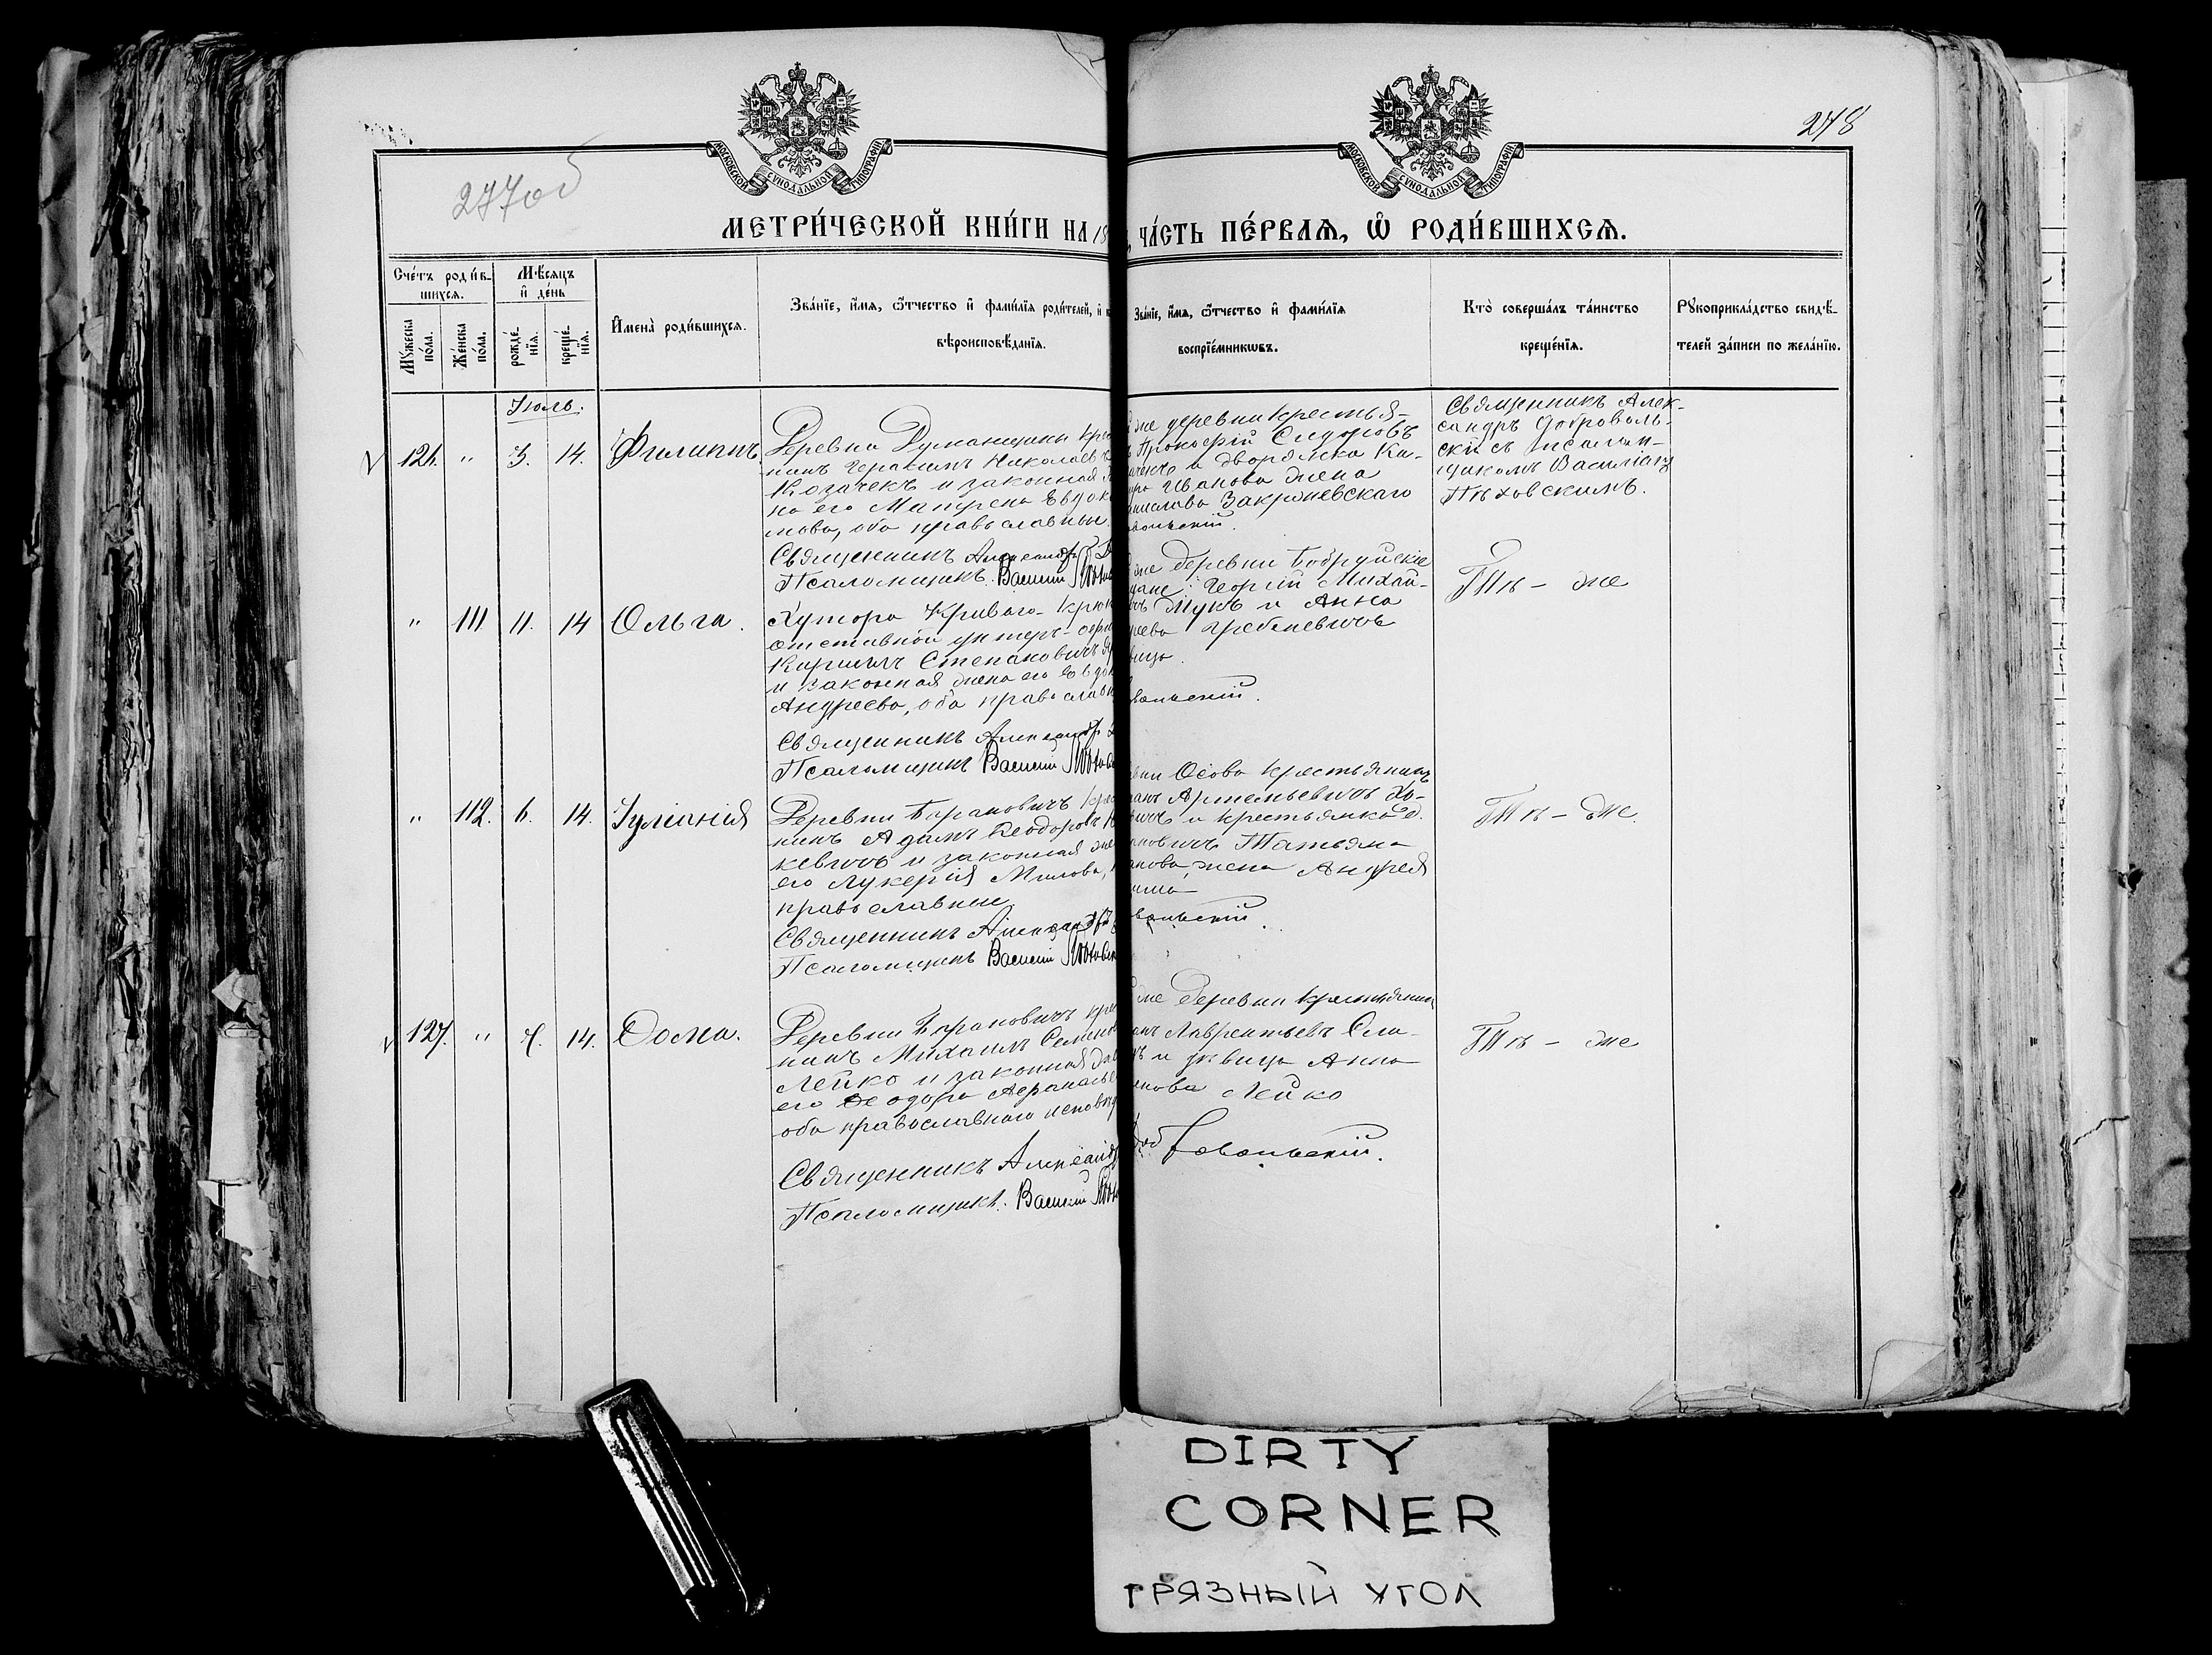 277об
278
МОСКОВСКОЙ СѴНОДАЛЬНОЙ ТИПОГРАФІИ
МОСКОВСКОЙ СѴНОДАЛЬНОЙ ТИПОГРАФІИ
МЕТРИ́ЧЕСКОЙ КНИ́ГИ НА 18
ЧА́СТЬ ПЕ́РВАЯ, Ѡ РОДИ́ВШИХСЯ.
Сче́тъ роди́в-
шихся.
Мѣ́сяцъ
и де́нь
Мꙋ́жеска
по́ла.
Же́нска
по́ла.
рожде́-
нїя.
креще́-
нїя.
Имена̀ роди́вшихся.
Зва́нїе, и́мя, ѻ́тчество и фами́лїя роди́телей, и
вѣроисповѣ́данїя.
Зва́нїе, и́мя, ѻ́тчество и фами́лїя
воспрїе́мникѡвъ.
Кто̀ соверша́лъ та́инство
креще́нїя.
Рꙋкоприкла́дство свидѣ́-
телей за́писи по жела́нїю.
Іюль.
126. " 3. 14. Филиппъ.
Деревни Думанщины крес
нинъ Герасимъ Николаевъ
Козачекъ и законная
на его Матрена Евдок
мова, оба православны.
Священникъ Александръ
Псаломщикъ Василій
же деревни крестья-
Прокофій Сидоровъ
и дворянка Ка-
Иванова жена
Закржевскаго
вольскій.
Священникъ Алек-
сандръ Доброволь-
скій съ псалом-
щикомъ Василіемъ
Пѣховскимъ.
" 111 11. 14 Ольга.
Хутора Криваго-Крюк
отставной унтеръ-офи
Степановичъ
и законная жена его Евдок
Андреева, оба православн
Священникъ Александръ
Псаломщикъ Василій
же деревни Бобруйскіе
Георгій Михай-
Жукъ и Анна
Гребеневичъ
вица.
вольскій.
Тѣ-же
" 112. 6. 14. Іуліанія
Деревни Баранович крес
нинъ Адамъ Ѳеодоровъ
кевичъ и законная же
его Лукерія
православные.
Священникъ Александръ
Псаломщикъ Василій
Осова крестьянинъ
Артемьевичъ
и крестьянка
Татьяна
жена Андрея
вольскій.
Тѣ-же.
127. " 7. 14. Ѳома.
Деревни Баранович крес
нинъ Михаилъ Семенов
Лейко и законная
его Ѳеодора Афанасье
оба православнаго исповѣд
Священникъ Александр
Псаломщикъ. Василій
же деревни крестьянинъ
Лаврентьевъ
и дѣвица Анна
Лейко
вольскій.
Тѣ-же
DIRTY
CORNER
ГРЯЗНЫЙ УГОЛ